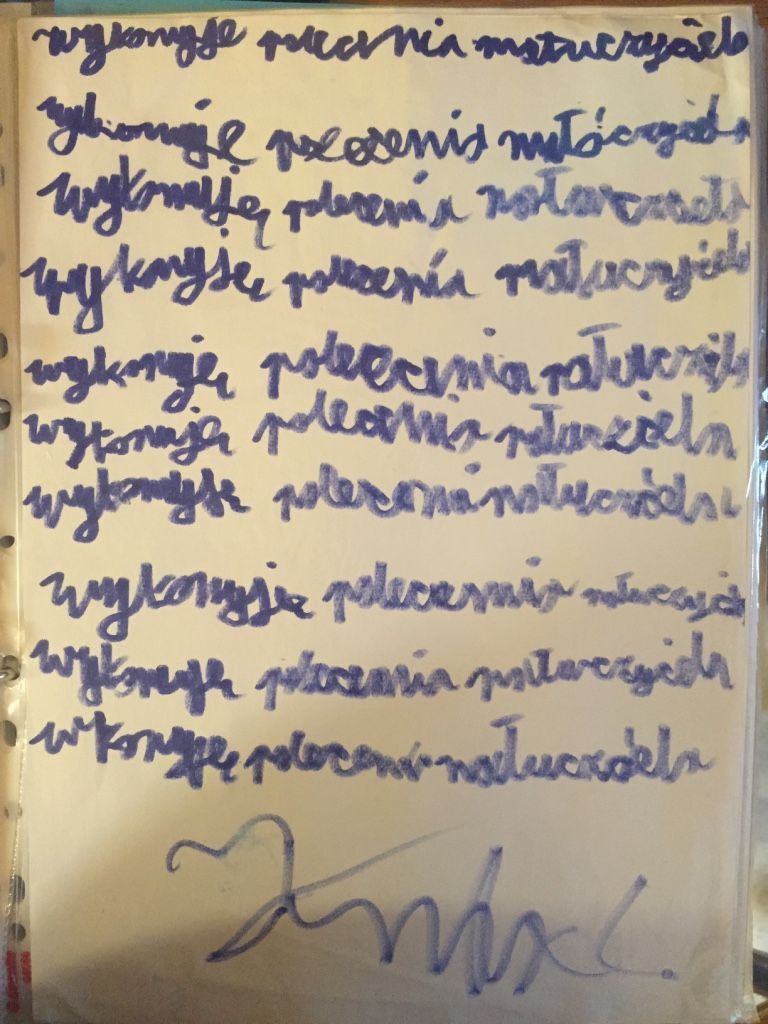 wykonyje polecnia matuczycielo
wykonuję polecenia nałóczyciela
wykonuję polecenia natuczciela
wyknyję polecenia natuczyciela
wykonuję polecania natuczciela
wykonuję polecania natuczciela
wykonyję poleceni natuczciela
wykonyję polecenia natuczyciela
wykonuję polecania natuczyciela
wkonyję poleceni natuczciela